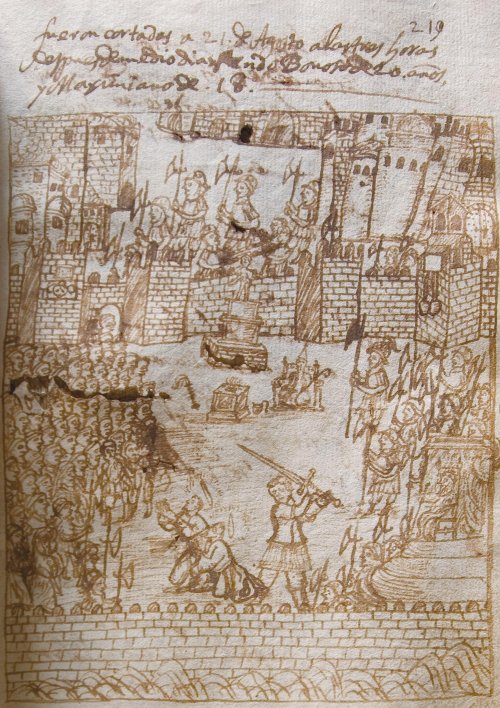 219
fueron cortadas a 21. de Agosto a las tres horas
despues de medio dia siendo Bonoso de 20. años,
y Maximiano de . 18 .